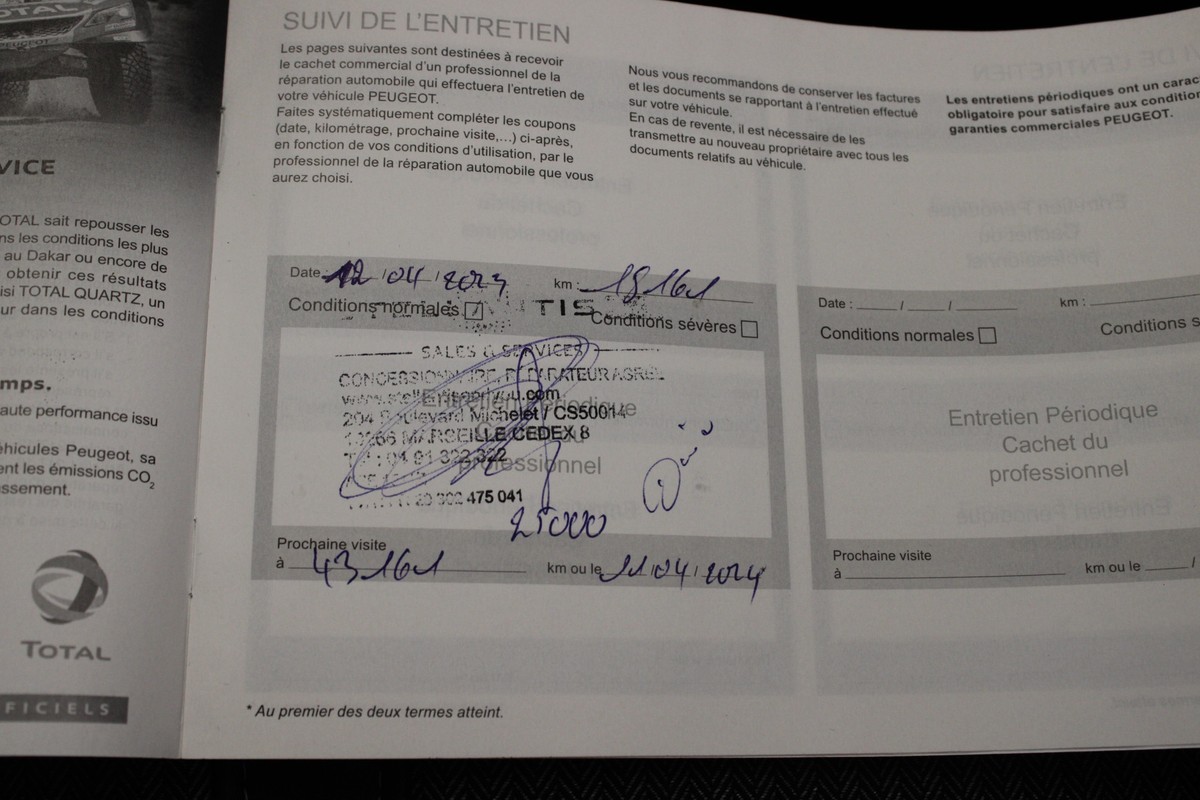 TOTAL
PEUGEOT
VICE
OTAL sait repousser les
ns les conditions les plus
au Dakar ou encore de
obtenir ces résultats
isi TOTAL QUARTZ, un
ur dans les conditions
mps.
aute performance issu
éhicules Peugeot, sa
ent les émissions CO2
ssement.
TOTAL
FICIELS
SUIVI DE L'ENTRETIEN
Les pages suivantes sont destinées à recevoir
le cachet commercial d'un professionnel de la
réparation automobile qui effectuera l'entretien de
votre véhicule PEUGEOT.
Faites systématiquement compléter les coupons
(date, kilométrage, prochaine visite,...) ci-après,
en fonction de vos conditions d'utilisation, par le
professionnel de la réparation automobile que vous
aurez choisi.
Nous vous recommandons de conserver les factures
et les documents se rapportant à l'entretien effectué
sur votre véhicule.
En cas de revente, il est nécessaire de les
transmettre au nouveau propriétaire avec tous les
documents relatifs au véhicule.
Les entretiens périodiques ont un carac
obligatoire pour satisfaire aux condition
garanties commerciales PEUGEOT.
Date : 12 / 04 / 2023 km : 18161
Conditions normales Conditions sévères
TIS
SALES & SERVICES
CONCESSIONNAIRE, REPARATEUR AGREE
204 Boulevard Michelet / CS50014
13266 MARSEILLE CEDEX 8
04 91 322 322
475 041
Entretien Périodique
professionnel
25000
Prochaine visite
à 43161 km ou le 11/04/2024
Date : / / km :
Conditions normales Conditions s
Entretien Périodique
Cachet du
professionnel
Prochaine visite
à km ou le /
* Au premier des deux termes atteint.